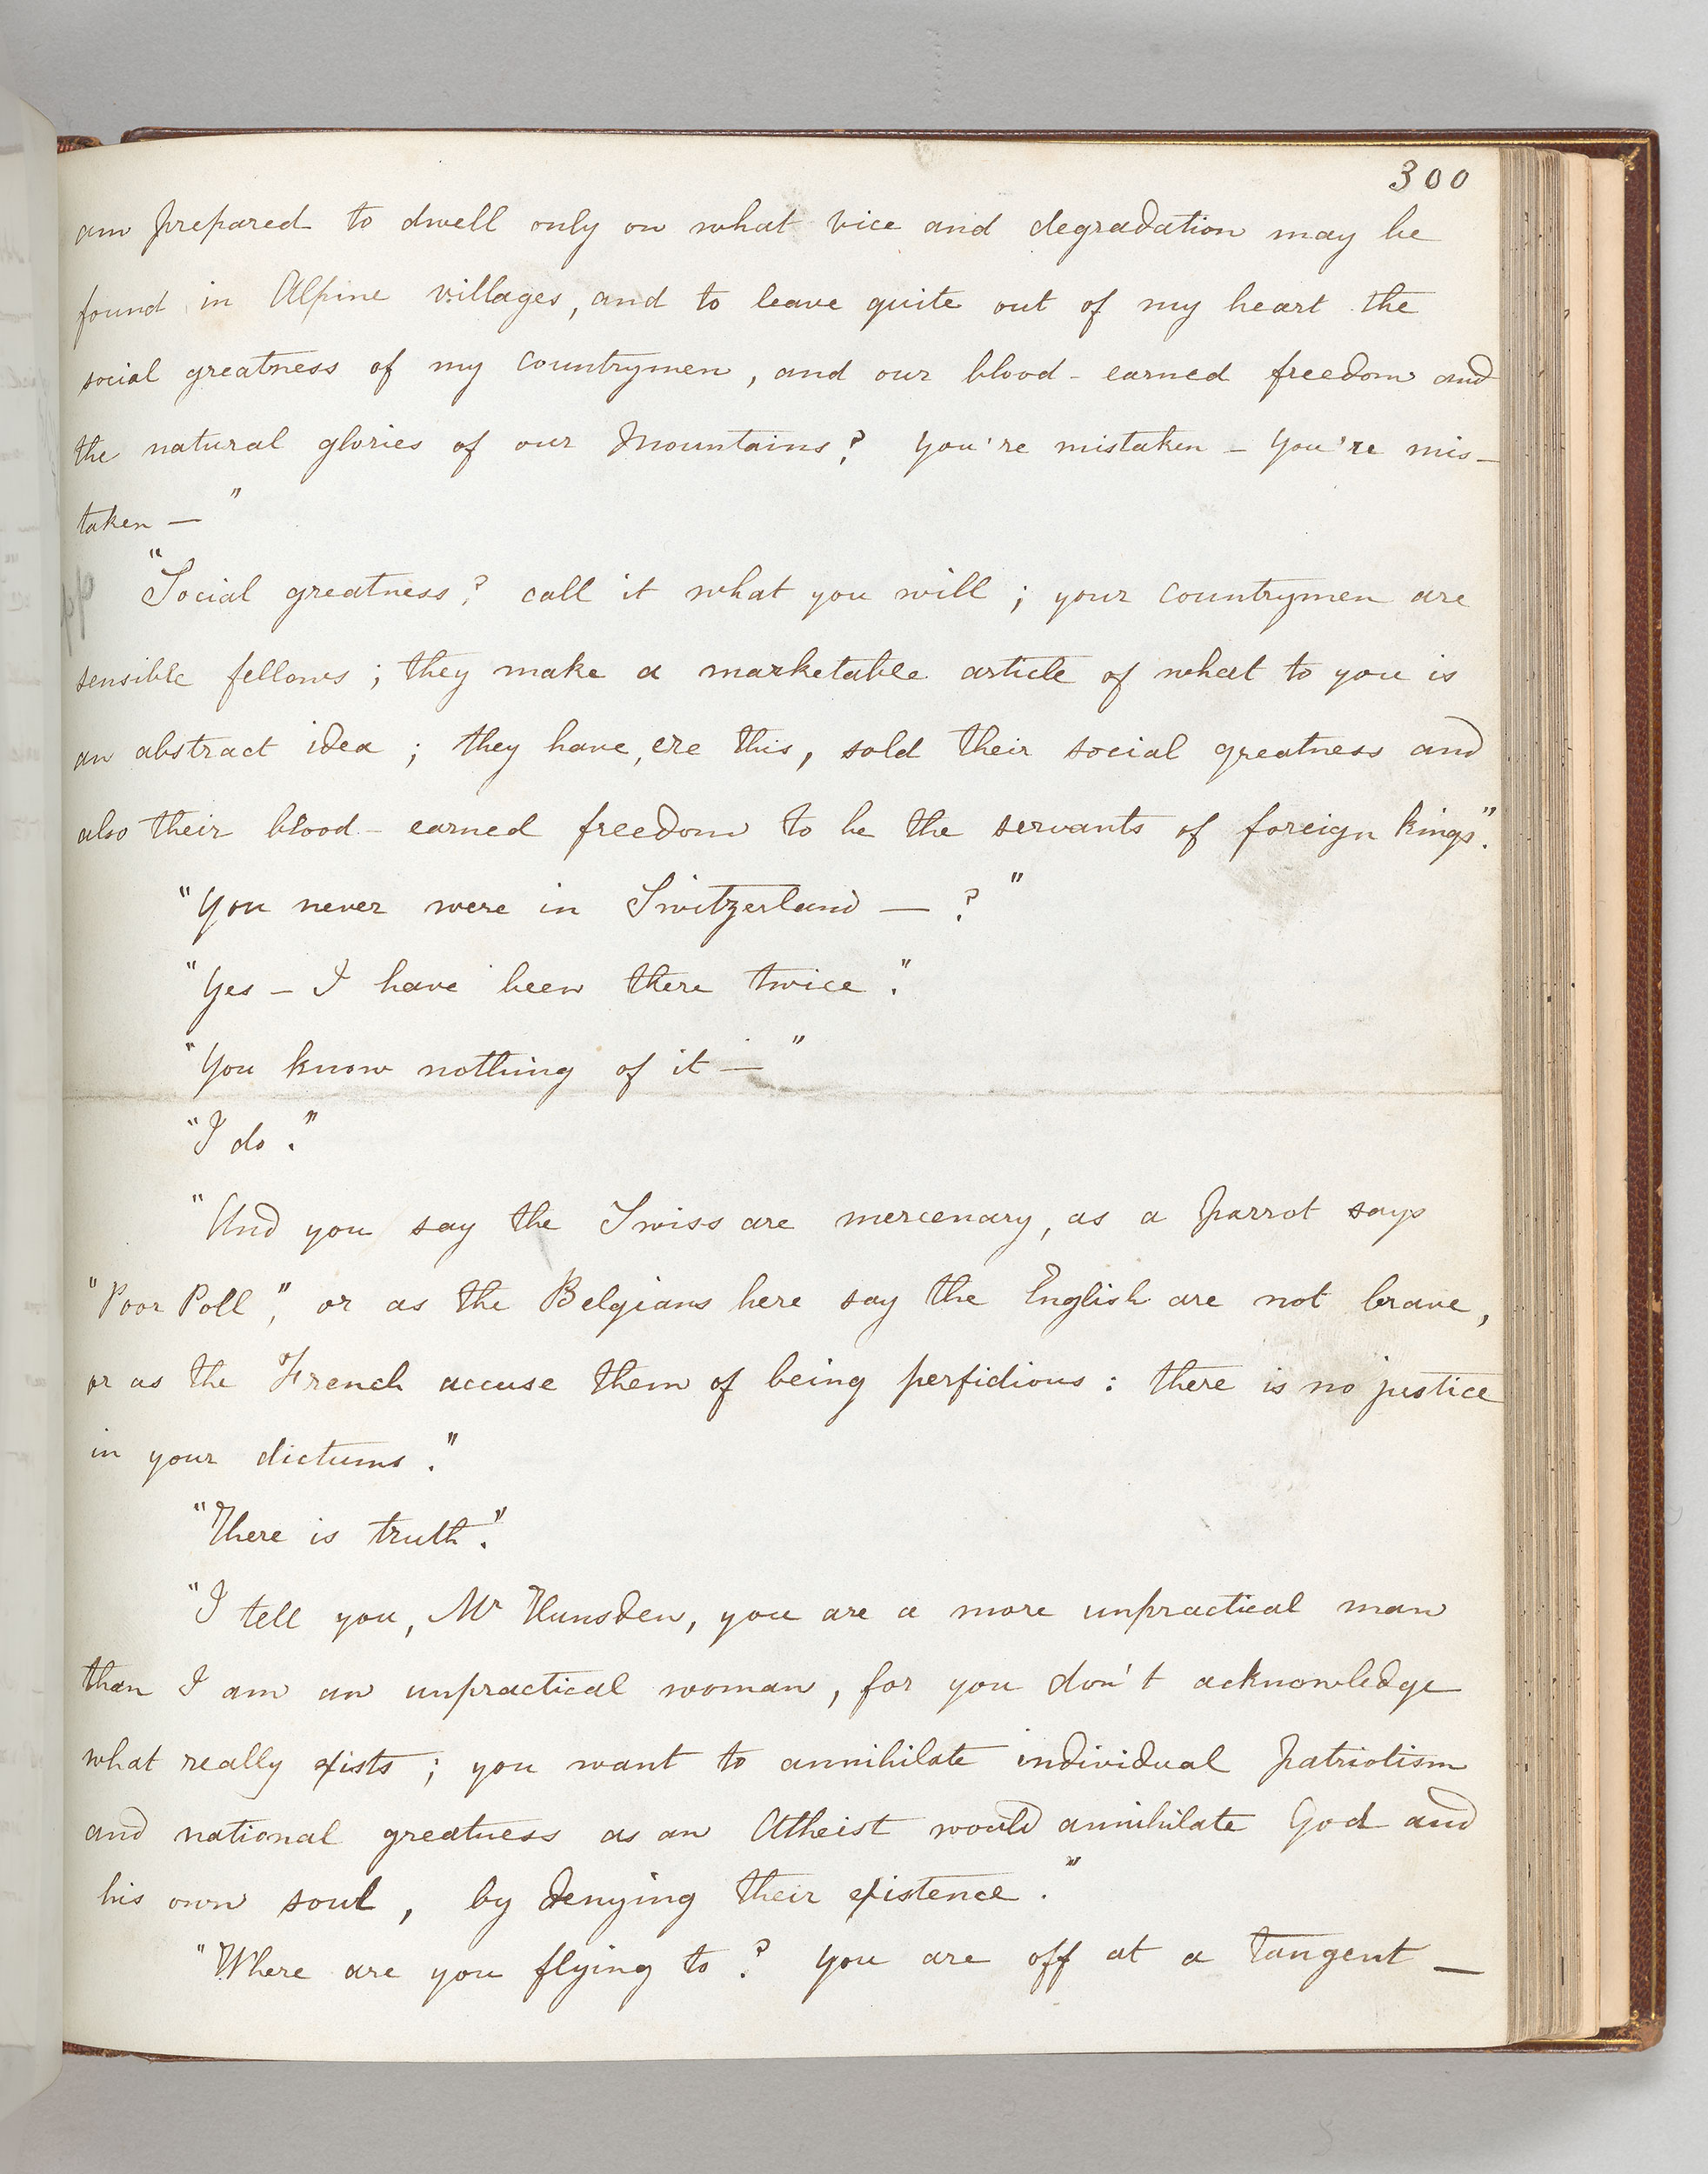 300
am prepared to dwell only on what vice and degradation may be
found in Alpine villages, and to leave quite out of my heart the
social greatness of my countrymen, and our blood-earned freedom and
the natural glories of our Mountains? You're mistaken - You're mis-
taken — "
"Social greatness? call it what you will; your countrymen are
sensible fellows; they make a marketable article of what to you is
an abstract idea; they have, ere this, sold their social greatness and
also their blood-earned freedom to be the servants of foreign kings."
"You never were in Switzerland — ?"
"Yes — I have been there twice."
"You know nothing of it — "
"I do."
"And you say the Swiss are mercenary, as a parrot says
"Poor Poll," or as the Belgians here say the English are not brave,
or as the French accuse them of being perfidious: there is no justice
in your dictums."
"There is truth."
"I tell you, Mr Hunsden, you are a more unpractical man
than I am an unpractical woman, for you don't acknowledge
what really exists; you want to annihilate individual patriotism
and national greatness as an Atheist would annihilate God and
his own soul, by denying their existence."
"Where are you flying to? You are off at a tangent —